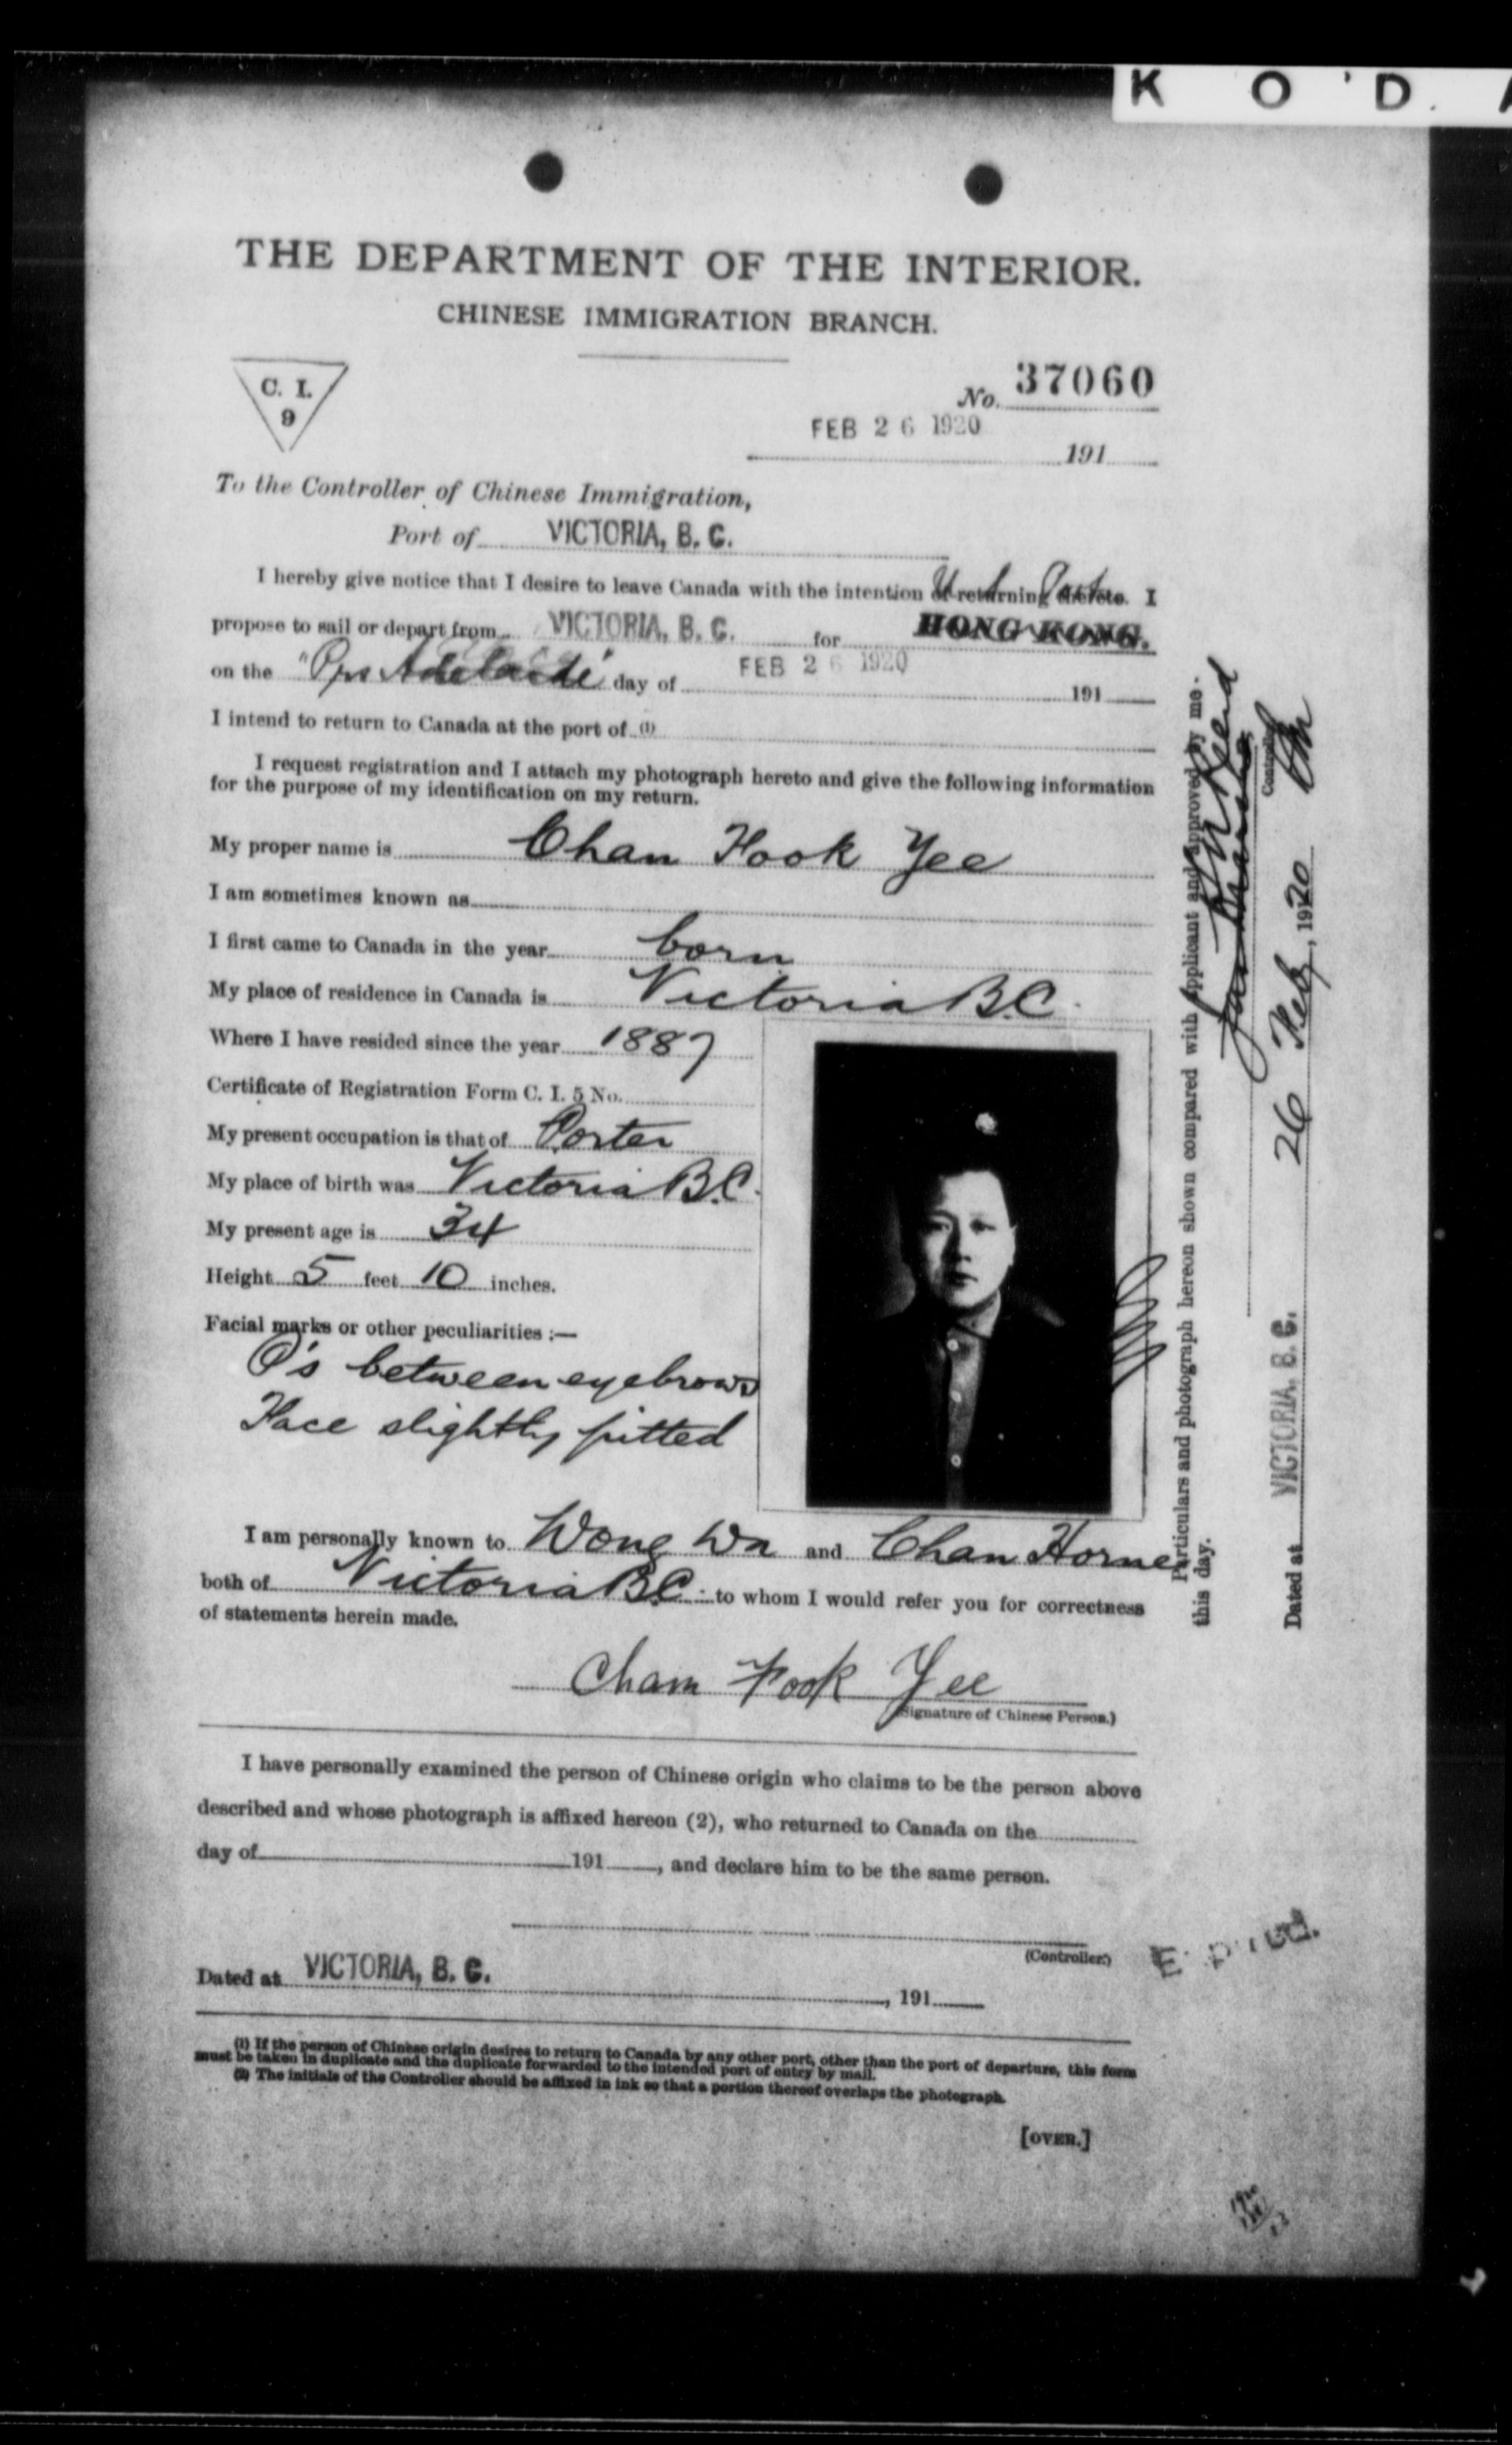 K O D
THE DEPARTMENT OF THE INTERIOR.
CHINESE IMMIGRATION BRANCH.
C. I.
9
No. 37060
FEB 26 1920
191
To the Controller of Chinese Immigration,
Port of VICTORIA, B. C.
I hereby give notice that I desire to leave Canada with the intention of returning thereto. I
propose to sail or depart from VICTORIA, B. C. for HONG KONG.
on the Adelaide day of FEB 26 1920 191
I intend to return to Canada at the port of (1)
I request registration and I attach my photograph hereto and give the following information
for the purpose of my identification on my return.
My proper name is Chan Fook Yee
I am sometimes known as
I first came to Canada in the year born
My place of residence in Canada is Victoria B.C.
Where I have resided since the year 1887
Certificate of Registration Form C. I. 5 No.
My present occupation is that of Porter
My place of birth was Victoria B.C.
My present age is 34
Height 5 feet 10 inches.
Facial marks or other peculiarities :—
P's between eyebrows
Face slightly pitted
I am personally known to Wong Wa and Chan Horne
both of Victoria B.C. to whom I would refer you for correctness
of statements herein made.
Cham Fook Yee
(Signature of Chinese Person.)
I have personally examined the person of Chinese origin who claims to be the person above
described and whose photograph is affixed hereon (2), who returned to Canada on the
day of 191 , and declare him to be the same person.
(Controller.)
Dated at VICTORIA, B. C. , 191
(1) If the person of Chinese origin desires to return to Canada by any other port, other than the port of departure, this form
must be taken in duplicate and the duplicate forwarded to the intended port of entry by mail.
(2) The initials of the Controller should be affixed in ink so that a portion thereof overlaps the photograph.
[OVER.]
Particulars and photograph hereon shown compared with applicant and approved by me
this day.
Controller
Dated at VICTORIA, B. C. 26 Feb, 1920